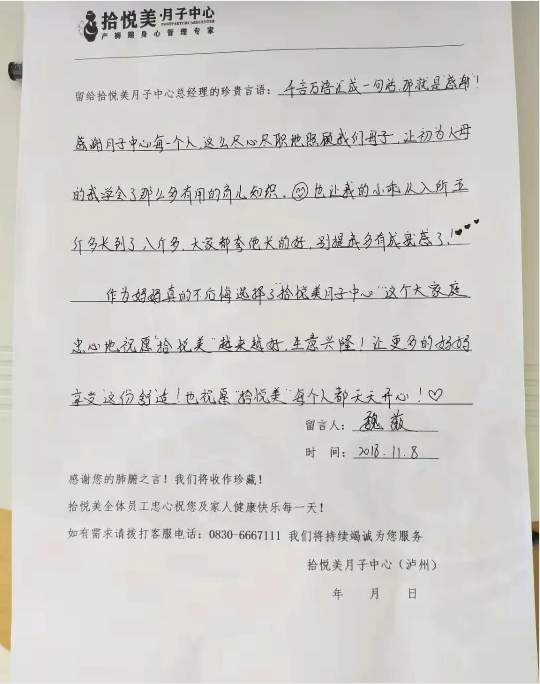 拾悦美·月子中心
POSTPARTUM CARE CENTER
产褥期身心管理专家
留给拾悦美月子中心总经理的珍贵言语：千言万语汇成一句话，那就是“感谢”！
感谢月子中心每一个人，这么尽心尽职地照顾我们母子，让初为人母
的我学会了那么多有用的育儿知识。也让我的小乖从入所五
斤多长到了八斤多，大家都夸他长的好，别提我多有成就感了！
作为妈妈真的不后悔选择了“拾悦美月子中心”这个大家庭
忠心地祝愿“拾悦美”越来越好，生意兴隆！让更多的妈妈
享受这份舒适！也祝愿“拾悦美”每个人都天天开心！♡
留言人：魏薇
时 间：2018.11.8
感谢您的肺腑之言！我们将收作珍藏！
拾悦美全体员工忠心祝您及家人健康快乐每一天！
如有需求请拨打客服电话：0830-6667111 我们将持续竭诚为您服务
拾悦美月子中心（泸州）
年 月 日